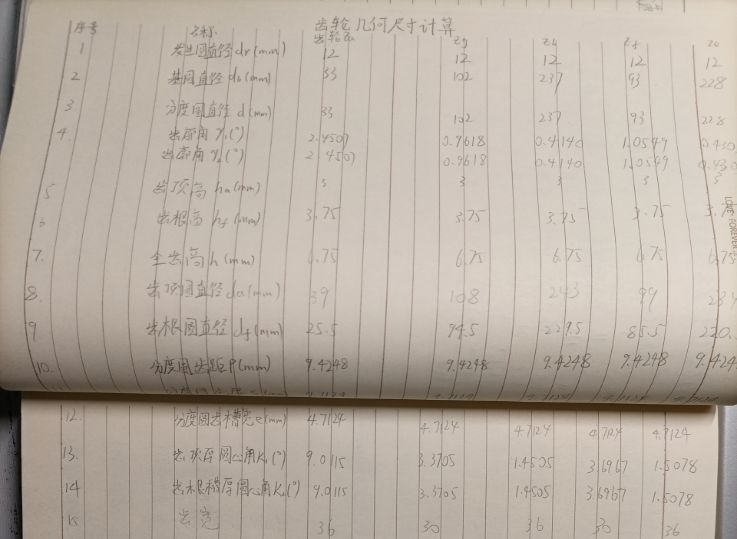 齿轮几何尺寸计算
序号 名称 齿轮Za Zg Z4 Zf Zo
1 发生圆直径 dr(mm) 12 12 12 12 12
2 基圆直径 db(mm) 33 102 237 93 228
3 分度圆直径 d(mm) 33 102 237 93 228
4 齿廓角 (°) 2.4507 0.9618 0.4140 1.0549 0.430
齿廓角 (°) 2.4507 0.9618 0.4140 1.0549 0.430
5 齿顶高 ha(mm) 3 3 3 3 3
6 齿根高 hf(mm) 3.75 3.75 3.75 3.75
7. 全齿高 h(mm) 6.75 6.75 6.75 6.75 6.75
8. 齿顶圆直径 da(mm) 39 108 243 99 234
9 齿根圆直径 df(mm) 25.5 94.5 229.5 85.5 220.
10. 分度圆齿距 P(mm) 9.4248 9.4248 9.4248 9.4248 9.424
12. 分度圆齿槽宽 e(mm) 4.7124 4.7124 4.7124 4.7124 4.7124
13. 齿顶厚圆心角 K1(°) 9.0115 3.3705 1.4505 3.6967 1.5078
14 齿根槽厚圆心角 K2(°) 9.0115 3.3705 1.4505 3.6967 1.5078
15 齿宽 36 30 36 30 36